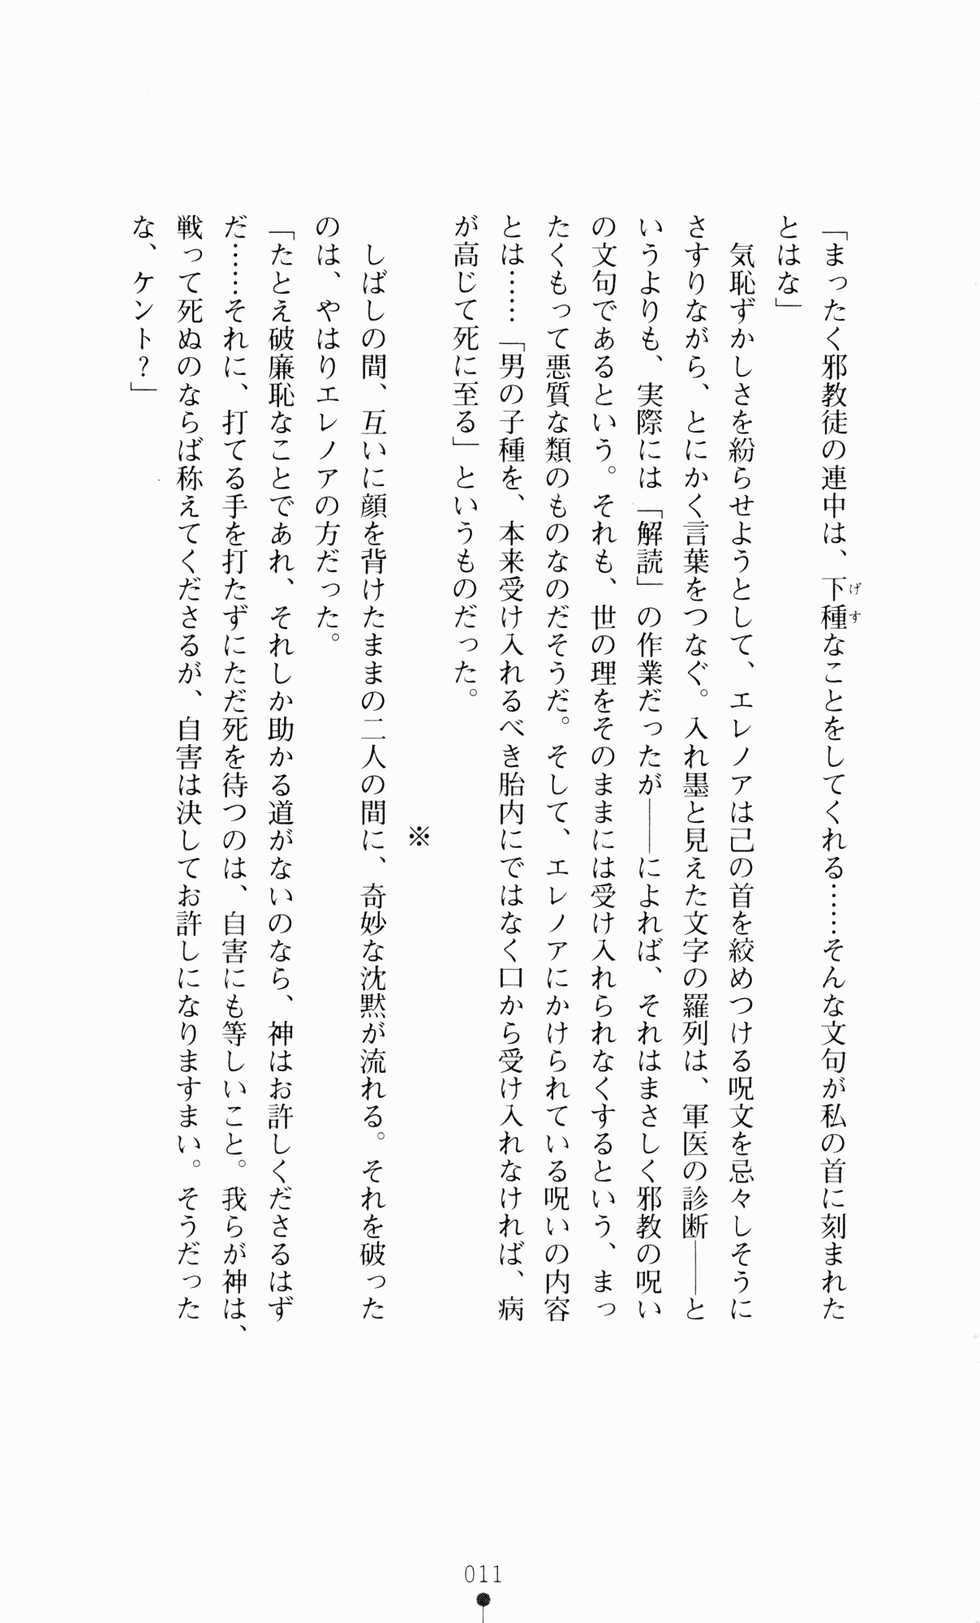 「まったく邪教徒の連中は、下種なことをしてくれる……そんな文句が私の首に刻まれた
とはな」
　気恥ずかしさを紛らせようとして、エレノアは己の首を絞めつける呪文を忌々しそうに
さすりながら、とにかく言葉をつなぐ。入れ墨と見えた文字の羅列は、軍医の診断――と
いうよりも、実際には「解読」の作業だったが――によれば、それはまさしく邪教の呪い
の文句であるという。それも、世の理をそのままには受け入れられなくするという、まっ
たくもって悪質な類のものなのだそうだ。そして、エレノアにかけられている呪いの内容
とは……「男の子種を、本来受け入れるべき胎内にではなく口から受け入れなければ、病
が高じて死に至る」というものだった。
※
　しばしの間、互いに顔を背けたままの二人の間に、奇妙な沈黙が流れる。それを破った
のは、やはりエレノアの方だった。
「たとえ破廉恥なことであれ、それしか助かる道がないのなら、神はお許しくださるはず
だ……それに、打てる手を打たずにただ死を待つのは、自害にも等しいこと。我らが神は、
戦って死ぬのならば称えてくださるが、自害は決してお許しになりますまい。そうだった
な、ケント？」
げす
011